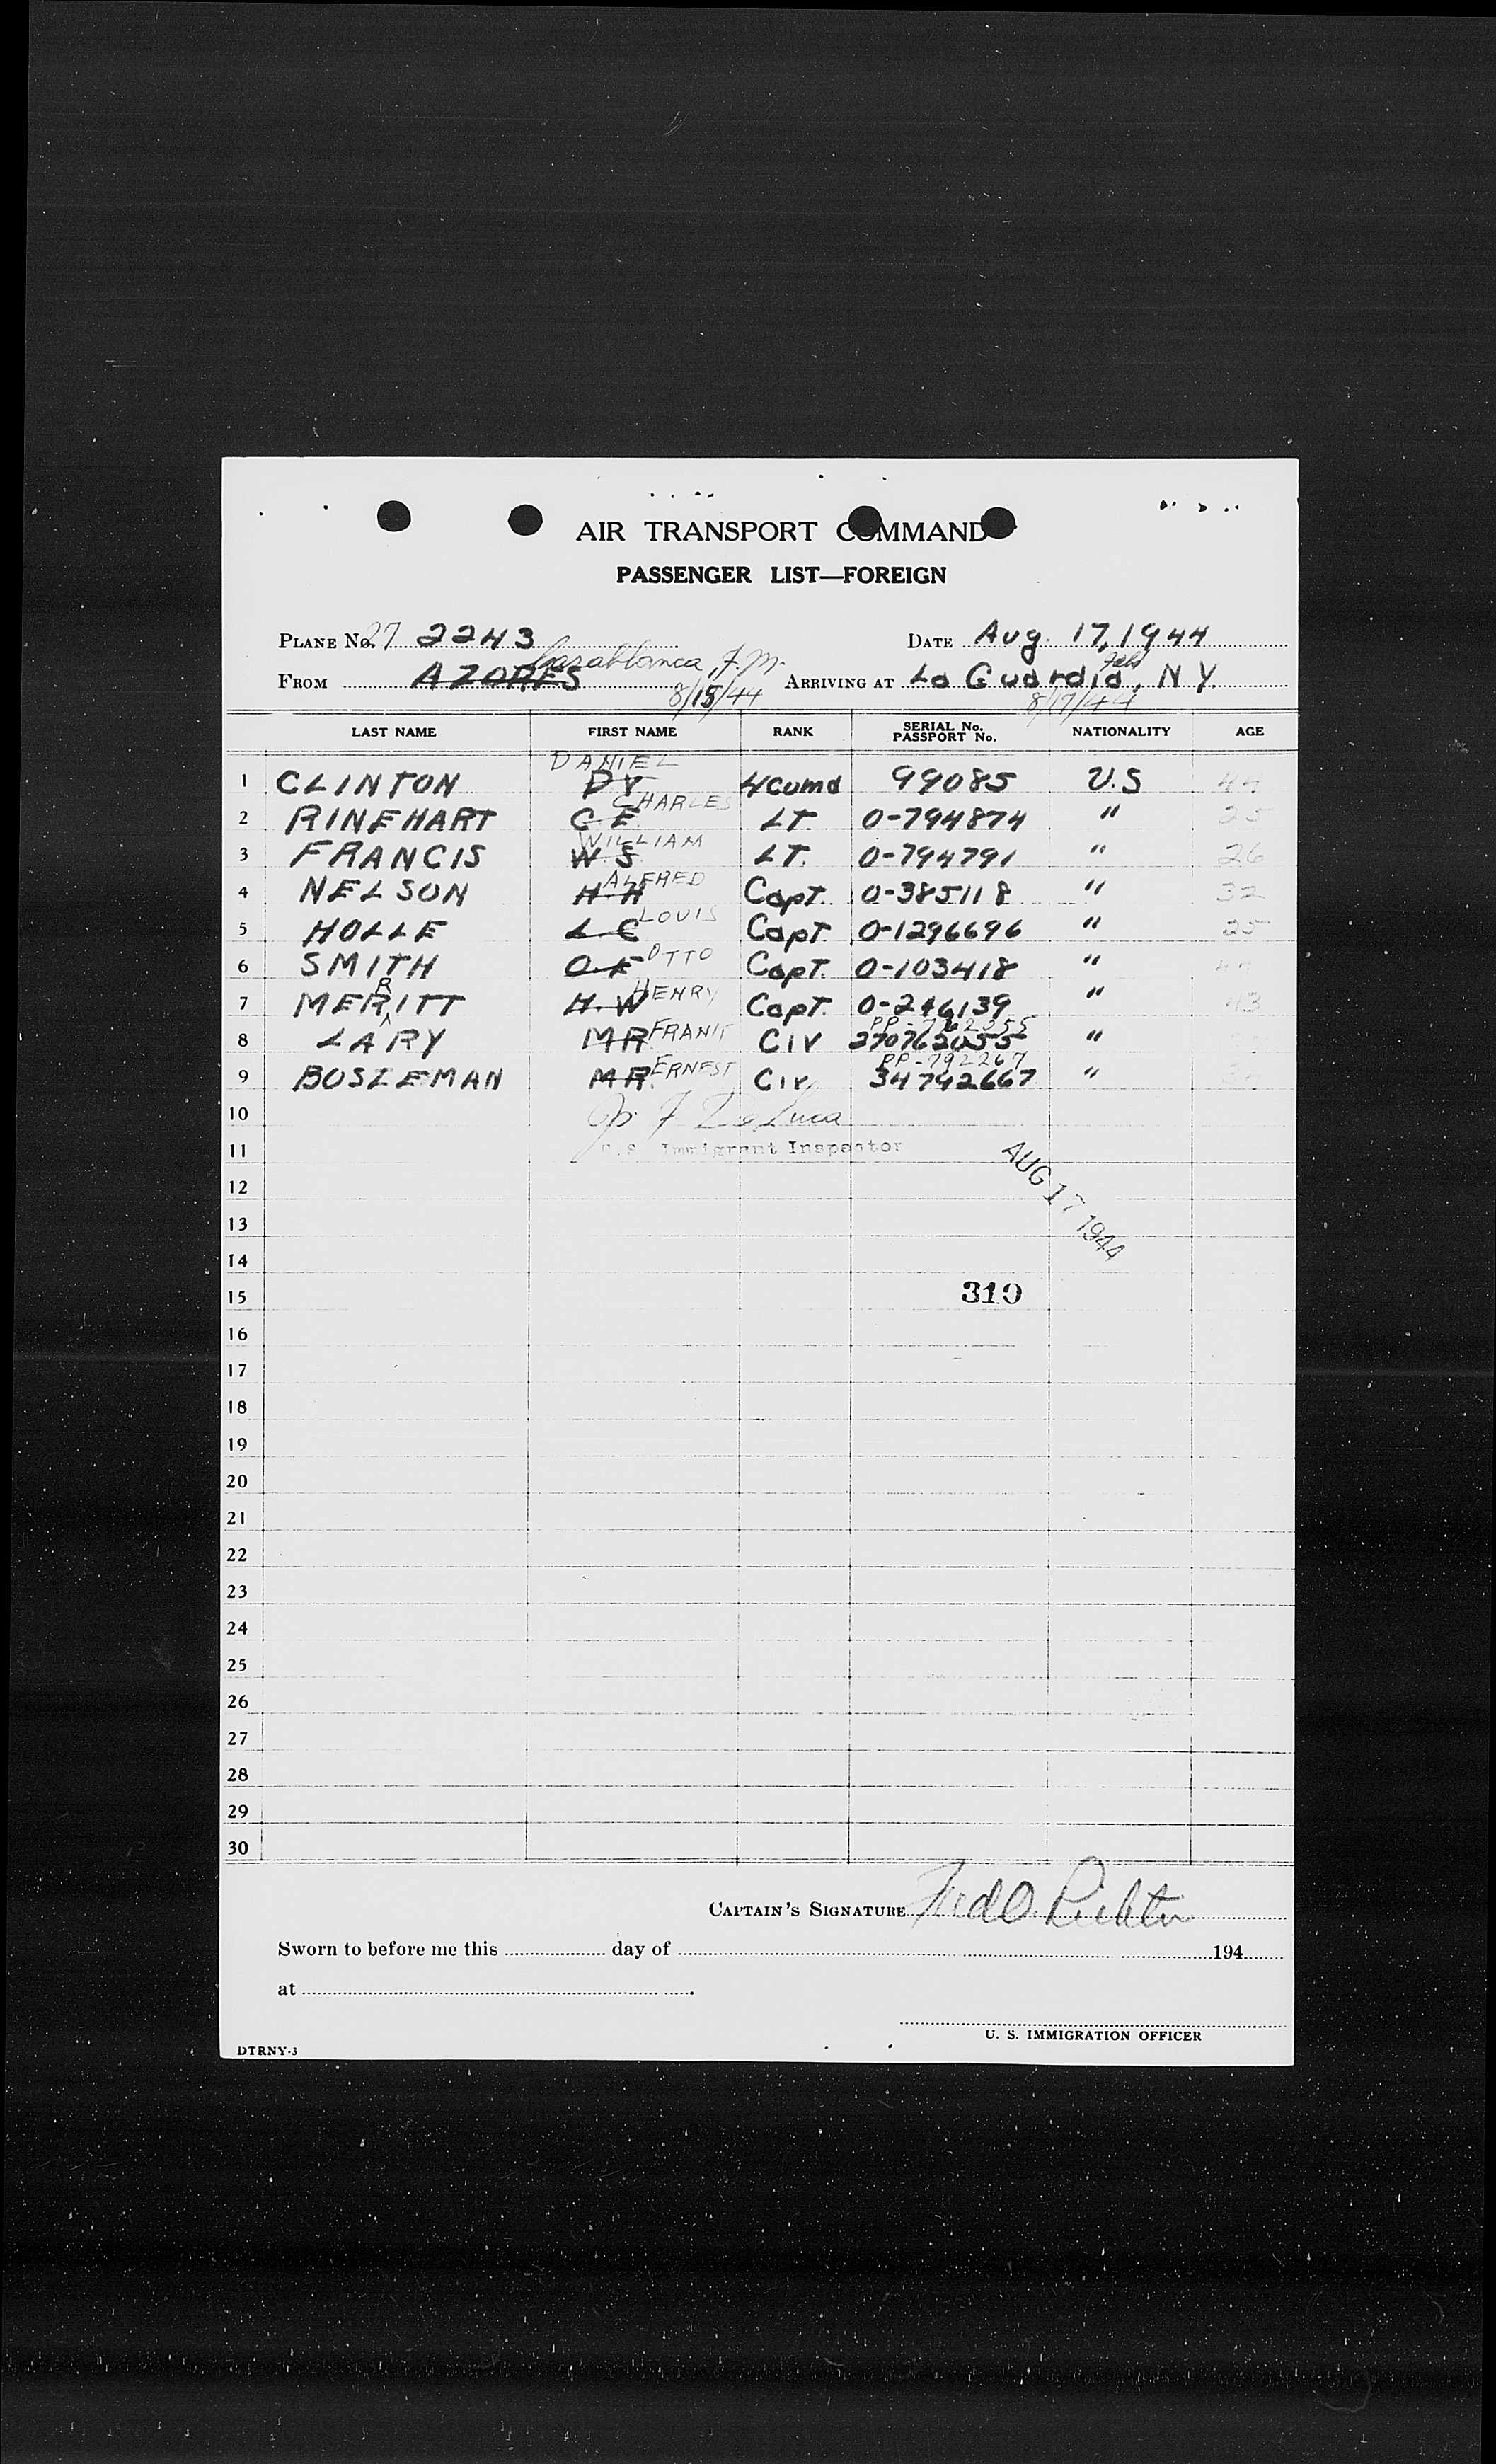 AIR TRANSPORT COMMAND
PASSENGER LIST—FOREIGN
PLANE No. 27 2243 DATE Aug. 17, 1944
Casablanca, F.M.
FROM AZORES 8/15/44 ARRIVING AT La Guardia Field, N Y. 8/17/44
LAST NAME FIRST NAME RANK SERIAL No. PASSPORT No. NATIONALITY AGE
1 CLINTON DY DANIEL Lt Comd 99085 U.S 44
2 RINEHART C E CHARLES LT. O-794874 " 25
3 FRANCIS W S WILLIAM LT. O-794791 " 26
4 NELSON H H ALFRED Capt. O-385118 " 32
5 HOLLE L C LOUIS Capt. O-1296696 " 25
6 SMITH O F OTTO Capt. O-103418 "
7 MERRITT H. W HENRY Capt. O-246139 " 43
8 LARY MR FRANK Civ PP-762055 270762055 "
9 BOSZEMAN MR. ERNEST Civ. PP-792267 34792667 "
10 Jos. F. De Luca
11 U.S. Immigrant Inspector
AUG 17 1944
12
13
14
15 310
16
17
18
19
20
21
22
23
24
25
26
27
28
29
30
CAPTAIN'S SIGNATURE Fred O. Richter
Sworn to before me this day of 194
at
U. S. IMMIGRATION OFFICER
DTRNY-3